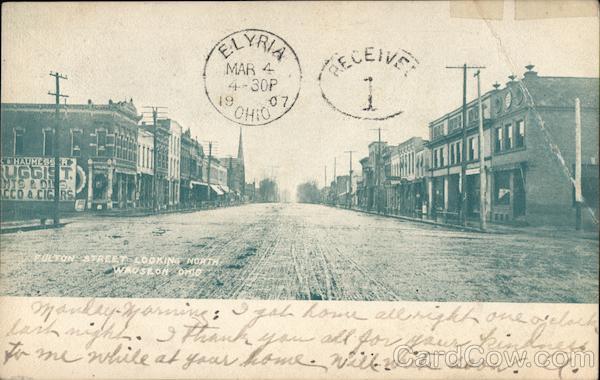 ELYRIA
MAR 4
4-30P
1907
OHIO
RECEIVED
1
& HAUMESSER
UGGIST
NTS & OILS
CCO & CIGARS
FULTON STREET LOOKING NORTH
WAUSEON OHIO
Monday Morning: I got home all right one o'clock
last night. I thank you all for your kindness
to me while at your home. Will write soon.
CardCow.com